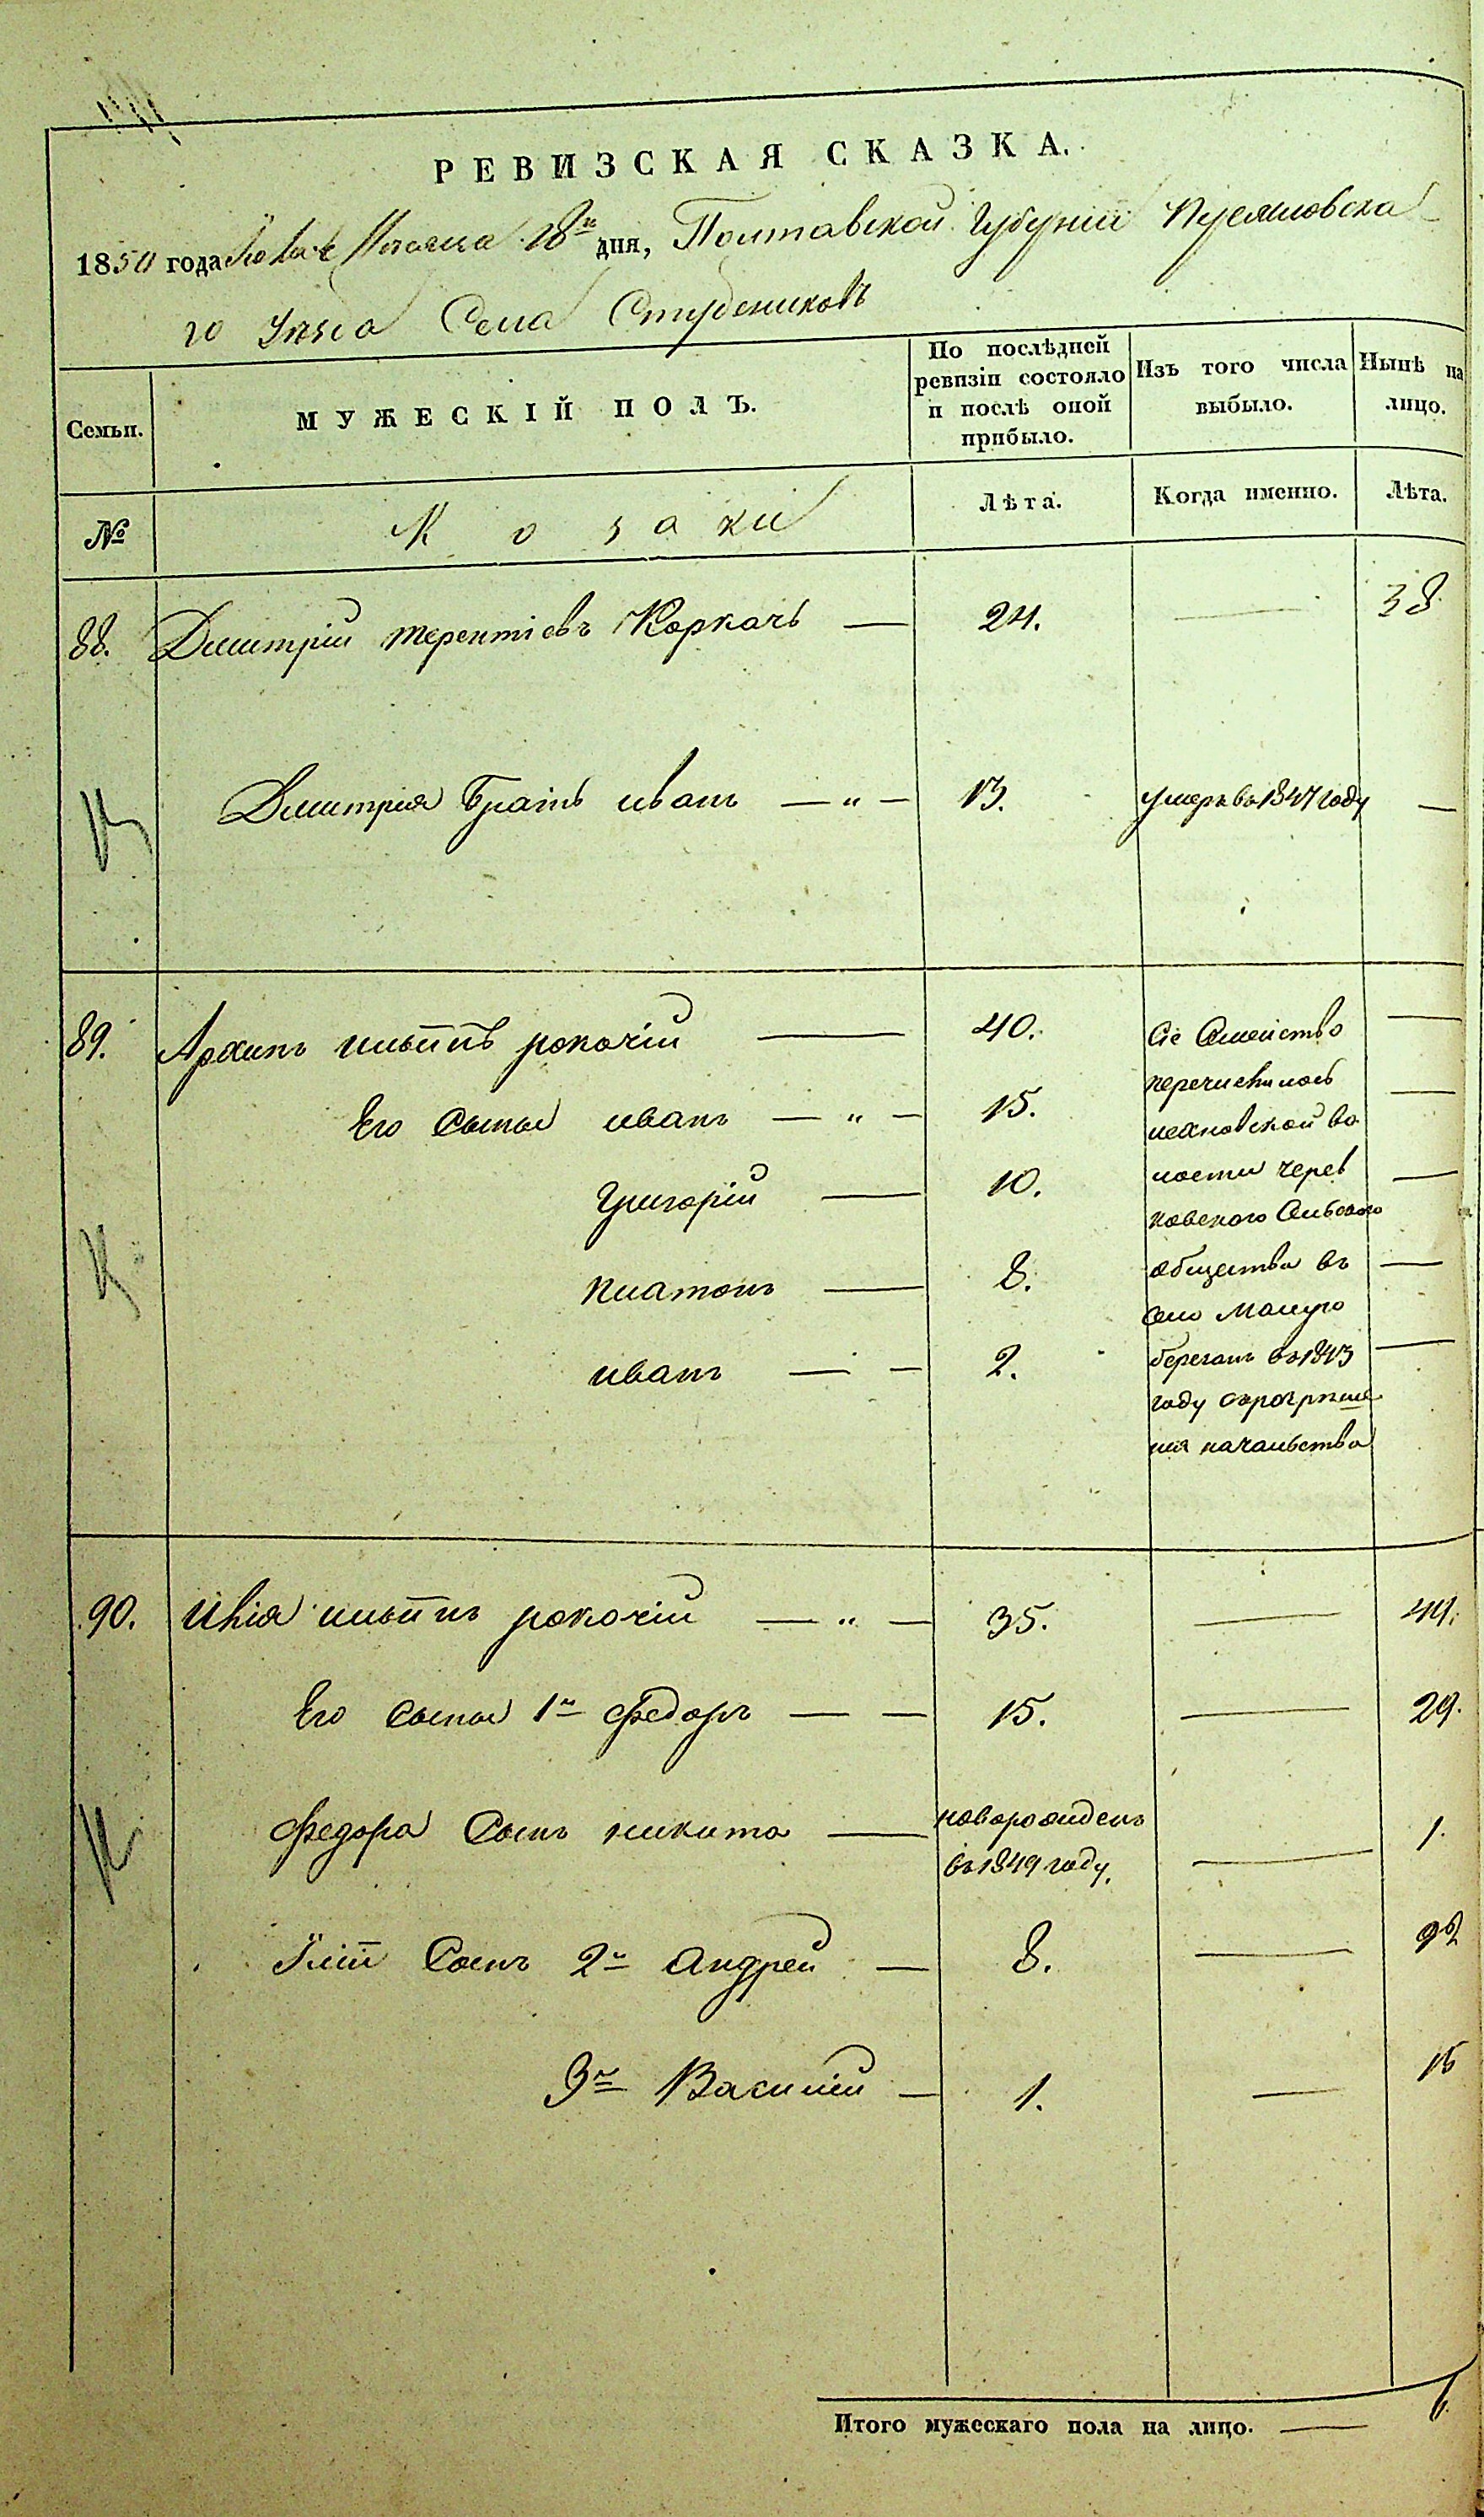 РЕВИЗСКАЯ СКАЗКА.
1850 года Месяца 18го дня, Полтавской Губерніи Переяславска
го Уезда Села Студениковъ
Семьи.
МУЖЕСКІЙ ПОЛЪ.
По послѣдней ревизіи состояло и послѣ оной прибыло.
Изъ того числа выбыло.
Нынѣ на лицо.
№
Козаки
Лѣта.
Когда именно.
Лѣта.
88. Дмитрій терентіевъ Коркачь — 24. — 38
Дмитрія Братъ иванъ — „ — 13. умеръ въ 1847 году —
89. Архипъ рокочій — 40. —
Его Сыны иванъ — „ — 15. —
Григорій — 10. —
платонъ — 8. —
иванъ — — 2. —
Сіе Семейство
перечислилось
волости
общества въ
село
въ 1843
году
нія начальства
90. Илія рокочій — „ — 35. — 49.
Его сыны 1й Федоръ — — 15. — 29.
Федора Сынъ никита — новорожденъ
въ 1849 году. — 1.
Сынъ 2й андрей — 8. — 22
3й Василій — 1. — 15
Итого мужескаго пола на лицо. — 6.